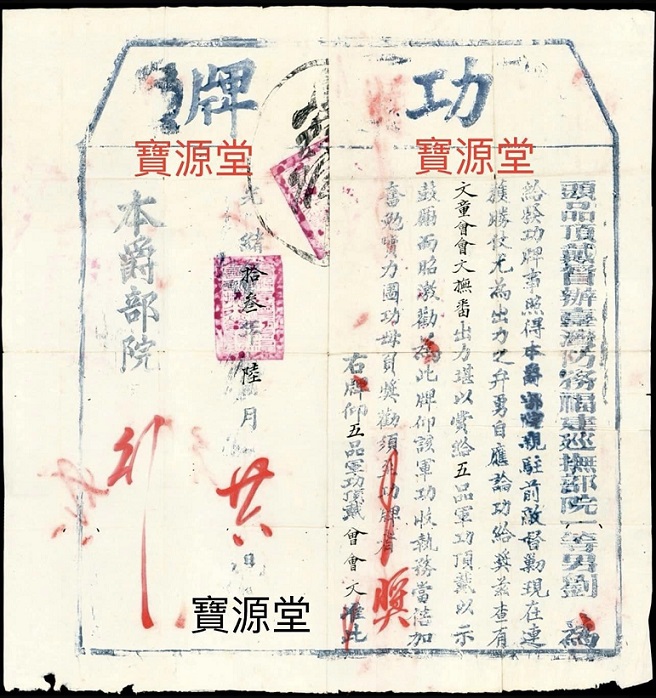 功牌
寶源堂
寶源堂
頭品頂戴督辦臺灣防務福建巡撫部院一等男劉 為
給發功牌事照得本爵部院親駐前敵督勦現在連
獲勝仗尤為出力之弁勇自應論功給獎茲查有
文童曾會文撫番出力堪以賞給五品軍功頂戴以示
鼓勵而昭激勸為此牌仰該軍功收執務當倍加
奮勉實力圖功毋負獎勸須至功牌者
右牌仰五品軍功頂戴曾會文准此
光緒拾叁年陸月廿日
本爵部院
行
獎
寶源堂